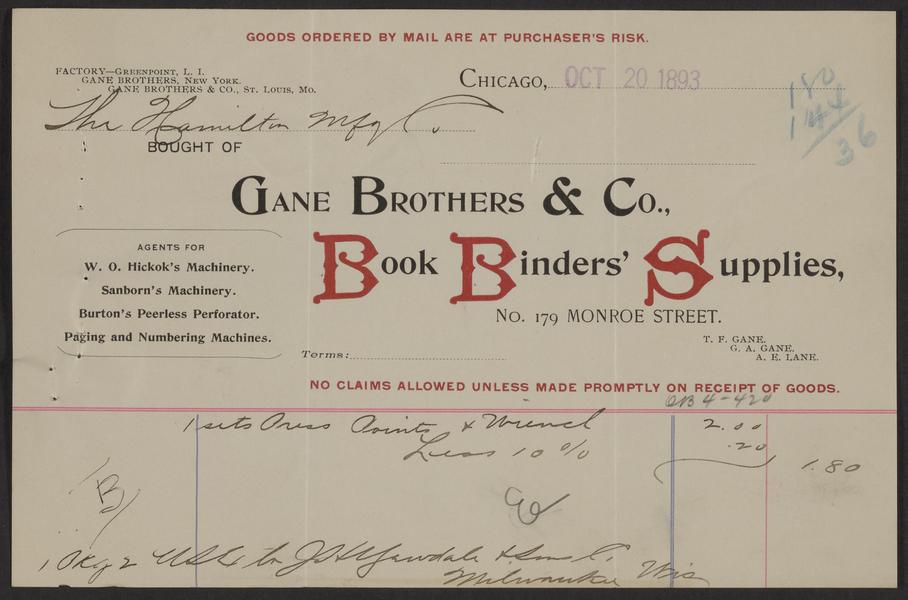 GOODS ORDERED BY MAIL ARE AT PURCHASER'S RISK.
FACTORY—GREENPOINT, L. I.
GANE BROTHERS, NEW YORK.
GANE BROTHERS & CO., ST. LOUIS, MO.
CHICAGO, OCT 20 1893
180
144
36
The Hamilton Mfg Co.
BOUGHT OF
GANE BROTHERS & CO.,
Book Binders' Supplies,
No. 179 MONROE STREET.
AGENTS FOR
W. O. Hickok's Machinery.
Sanborn's Machinery.
Burton's Peerless Perforator.
Paging and Numbering Machines.
T. F. GANE.
G. A. GANE.
A. E. LANE.
Terms:
NO CLAIMS ALLOWED UNLESS MADE PROMPTLY ON RECEIPT OF GOODS.
OB 4-420
1 sets Press Points & Wrench 2.00
Less 10 % .20
1.80
B
1 Pkg U S Ex to J H Yewdale & Sons Co.
Milwaukee Wis